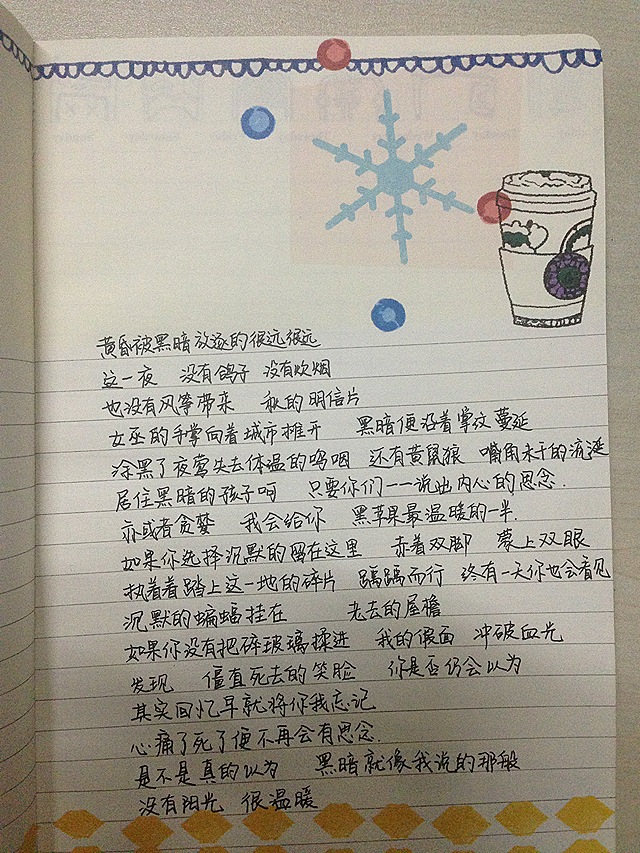 黄昏被黑暗放逐的很远很远
这一夜 没有鸽子 没有炊烟
也没有风筝带来 秋的明信片
女巫的手掌向着城市摊开 黑暗便沿着掌纹蔓延
涂黑了夜莺失去体温的呜咽 还有黄鼠狼 嘴角未干的流涎
居住黑暗的孩子呵 只要你们一一说出内心的思念.
亦或者贪婪 我会给你 黑苹果最温暖的一半.
如果你选择沉默的留在这里 赤着双脚 蒙上双眼
执着着踏上这一地的碎片 蹒蹒而行 终有一天你也会看见
沉默的蝙蝠挂在 老去的屋檐
如果你没有把碎玻璃揉进 我的假面 冲破血光
发现 僵直死去的笑脸 你是否仍会以为
其实回忆早就将你我忘记
心痛了死了便不再会有思念.
是不是真的以为 黑暗就像我说的那般
没有阳光 很温暖